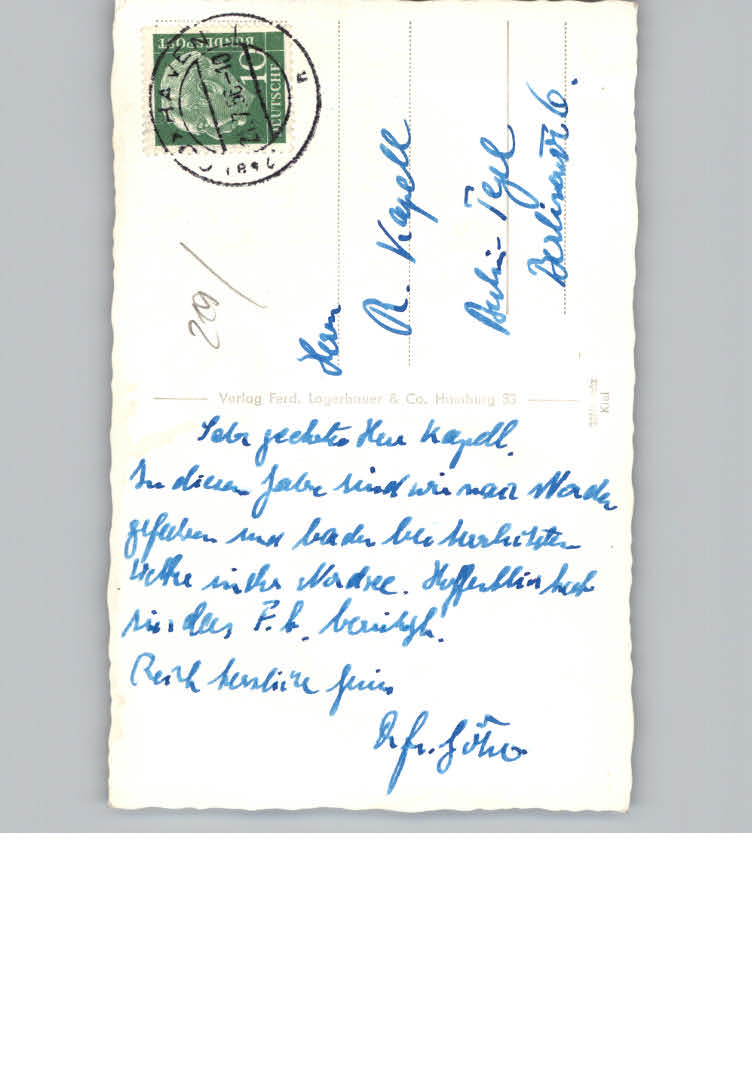 DEUTSCHE
BUNDESPOST
10
HAVEN
209/
Herrn
R. Kapell
Berlin-Tegel
Berlinerstr. 6.
Verlag Ferd. Lagerbauer & Co. Hamburg 33
Kiel
Sehr geehrter Herr Kapell.
In diesem Jahre sind wir nach Norden
gefahren und baden bei herrlichsten
Wetter in der Nordsee. Hoffentlich hat
sich das F. A. beruhigt.
Recht herzliche Grüße